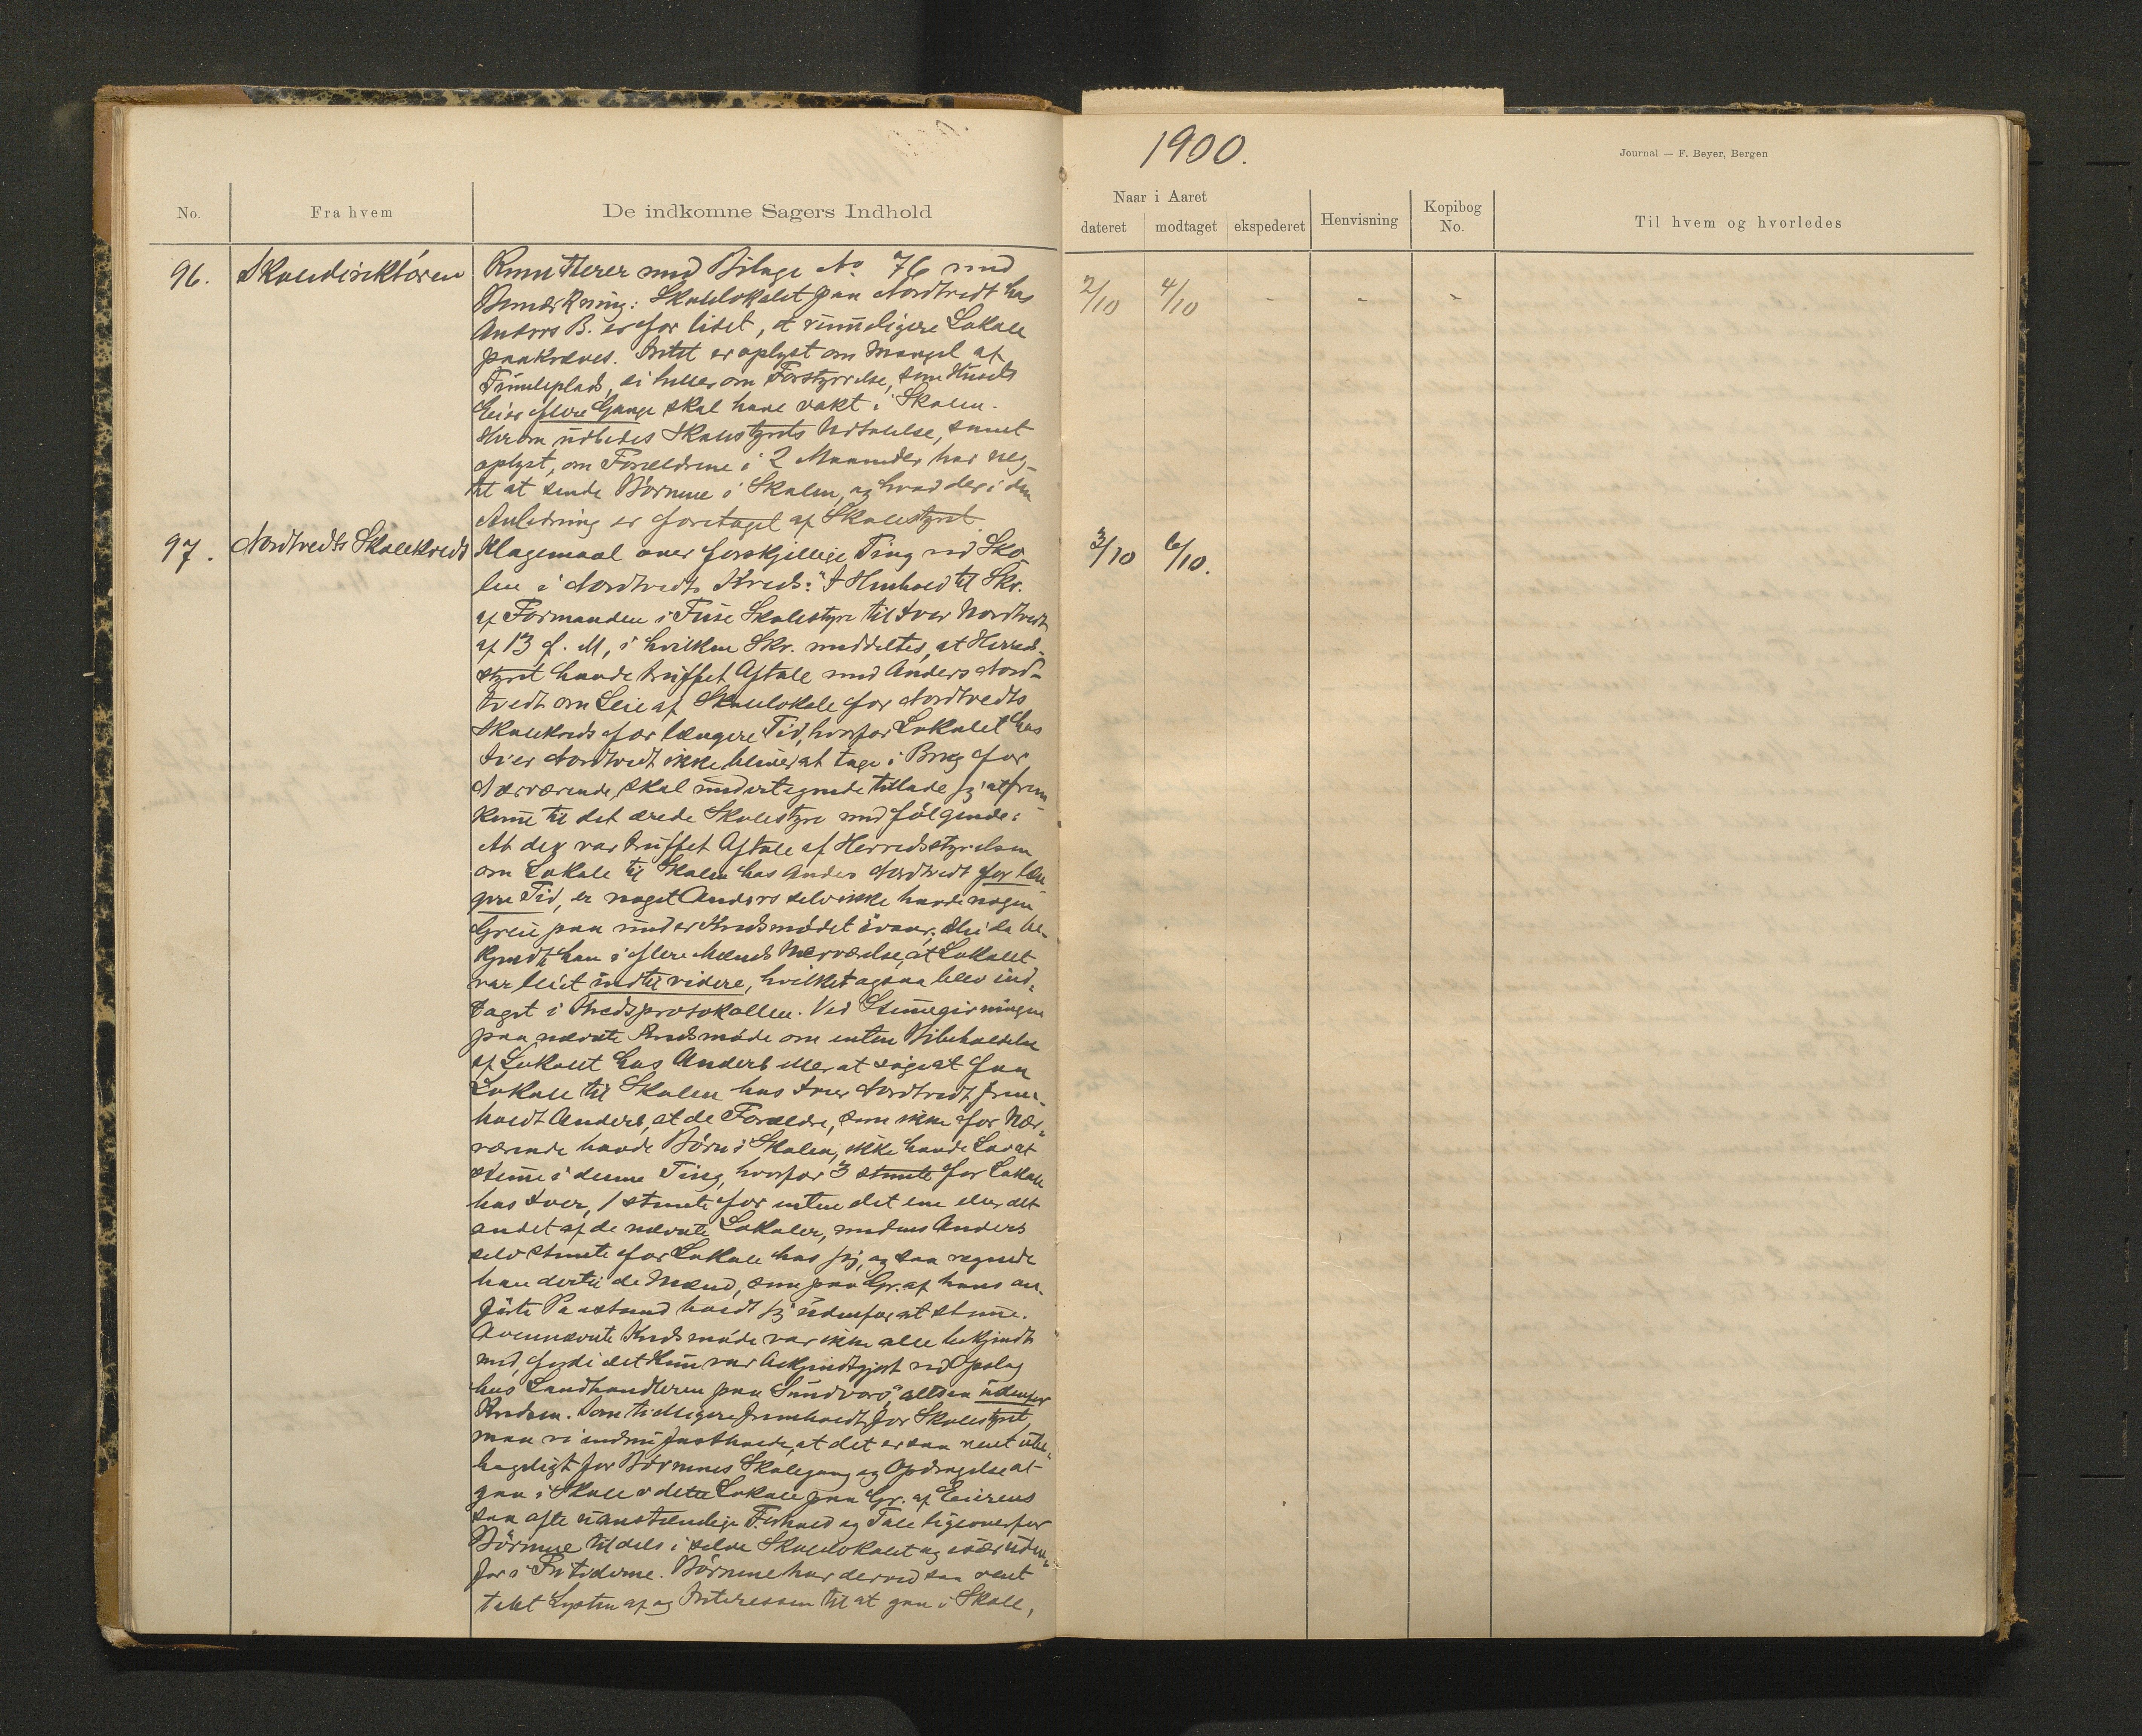 1900.
Journal — F. Beyer, Bergen
No.
Fra hvem
De indkomne Sagers Indhold
Naar i Aaret
dateret
modtaget
ekspederet
Henvisning
Kopibog
No.
Til hvem og hvorledes
96. Skoledirektören Remitterer med Bilage No 76 med 2/10 4/10 - - -
Bemærkning: Skolelokalet paa Nordtvedt hos
Anders B. er for lidet, et rummeligere Lokale
paakræves. Intet er oplyst om Mangel af
Tumleplads, ei heller om Forstyrrelse, som Husets
Eier flere Gange skal have vakt i Skolen.
Herom udbedes Skolestyrets Udtalelse, samt
oplyst, om Forældrene i 2 Maaneder har neg-
tet at sende Börnene i Skolen, og hvad der i den
Anledning er foretaget af Skolestyret.
97. Nordtvedts Skolekreds Klagemaal over forskjellige Ting ved Sko- 3/10 6/10.
len i Nordtvedts Kreds: "I Henhold til Skr.
af Formanden i Fuse Skolestyre til Iver Nordtvedt
af 13 f. M, i hvilken Skr. meddeltes, at Herreds-
styret havde truffet Aftale med Anders Nord-
tvedt om Leie af Skolelokale for Nordtvedts
Skolekreds for længere Tid, hvorfor Lokalet hos
Iver Nordtvedt ikke bliver at tage i Brug for
Nærværende, skal undertegnede tillade sig at frem-
komme til det ærede Skolestyre med fölgende:
At der var truffet Aftale af Herredsstyrelsen
om Lokale til Skolen hos Anders Nordtvedt for læn-
gere Tid, er noget Anders selv ikke havde nogen
Greie paa under Kredsmödet
han i flere Mænds Nærværelse, at Lokalet
var leiet indtil videre, hvilket ogsaa blev ind-
taget i Kredsprotokollen. Ved Stemmegivningen
paa nævnte Kredsmöde om enten Bibeholdelse
af Lokalet hos Anders eller at söge at faa
Lokale til Skolen hos Iver Nordtvedt, frem-
holdt Anders, at de Forældre, som ikke for Nær-
værende havde Börn i Skolen, ikke havde Lov at
stemme i denne Ting, hvorfor 3 stemte for Lokale
hos Iver, 1 stemte for enten det ene eller det
andet af de nævnte Lokaler, medens Anders
selv stemte for Lokale hos sig, og saa regnede
han dertil de Mænd, som paa Gr. af hans an-
förte Paastand holdt sig udenfor at stemme.
Ovennævnte Kredsmöde var ikke alle bekjendt
med, fordi det kun var bekjendtgjort ved Opslag
hos Landhandleren paa Sundvord, altsaa udenfor
Kredsen. Som tidligere fremholdt for Skolestyret,
maa vi endnu fastholde, at det er saa rent ube-
hageligt for Börnenes Skolegang og Opdragelse at
gaa i Skole i dette Lokale paa Gr. af Eierens
saa ofte uanstændige Forhold og Tale ligeoverfor
Börnene tildels i selve Skolelokalet og især uden-
for i Fritiderne. Börnene har derved saa rent
tabt Lysten af og Interessen til at gaa i Skole,